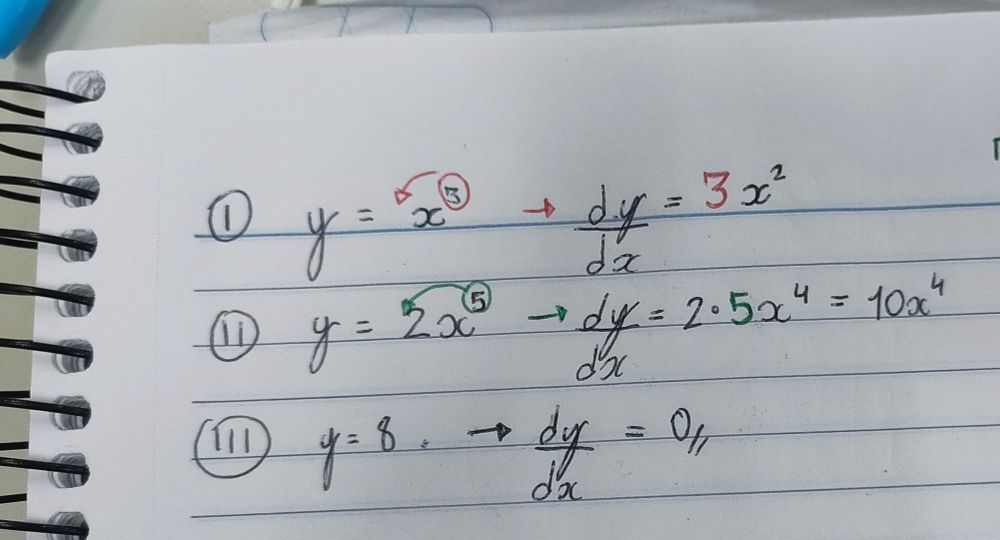 ① y = x³ → dy/dx = 3x²
② y = 2x⁵ → dy/dx = 2·5x⁴ = 10x⁴
③ y = 8. → dy/dx = 0//